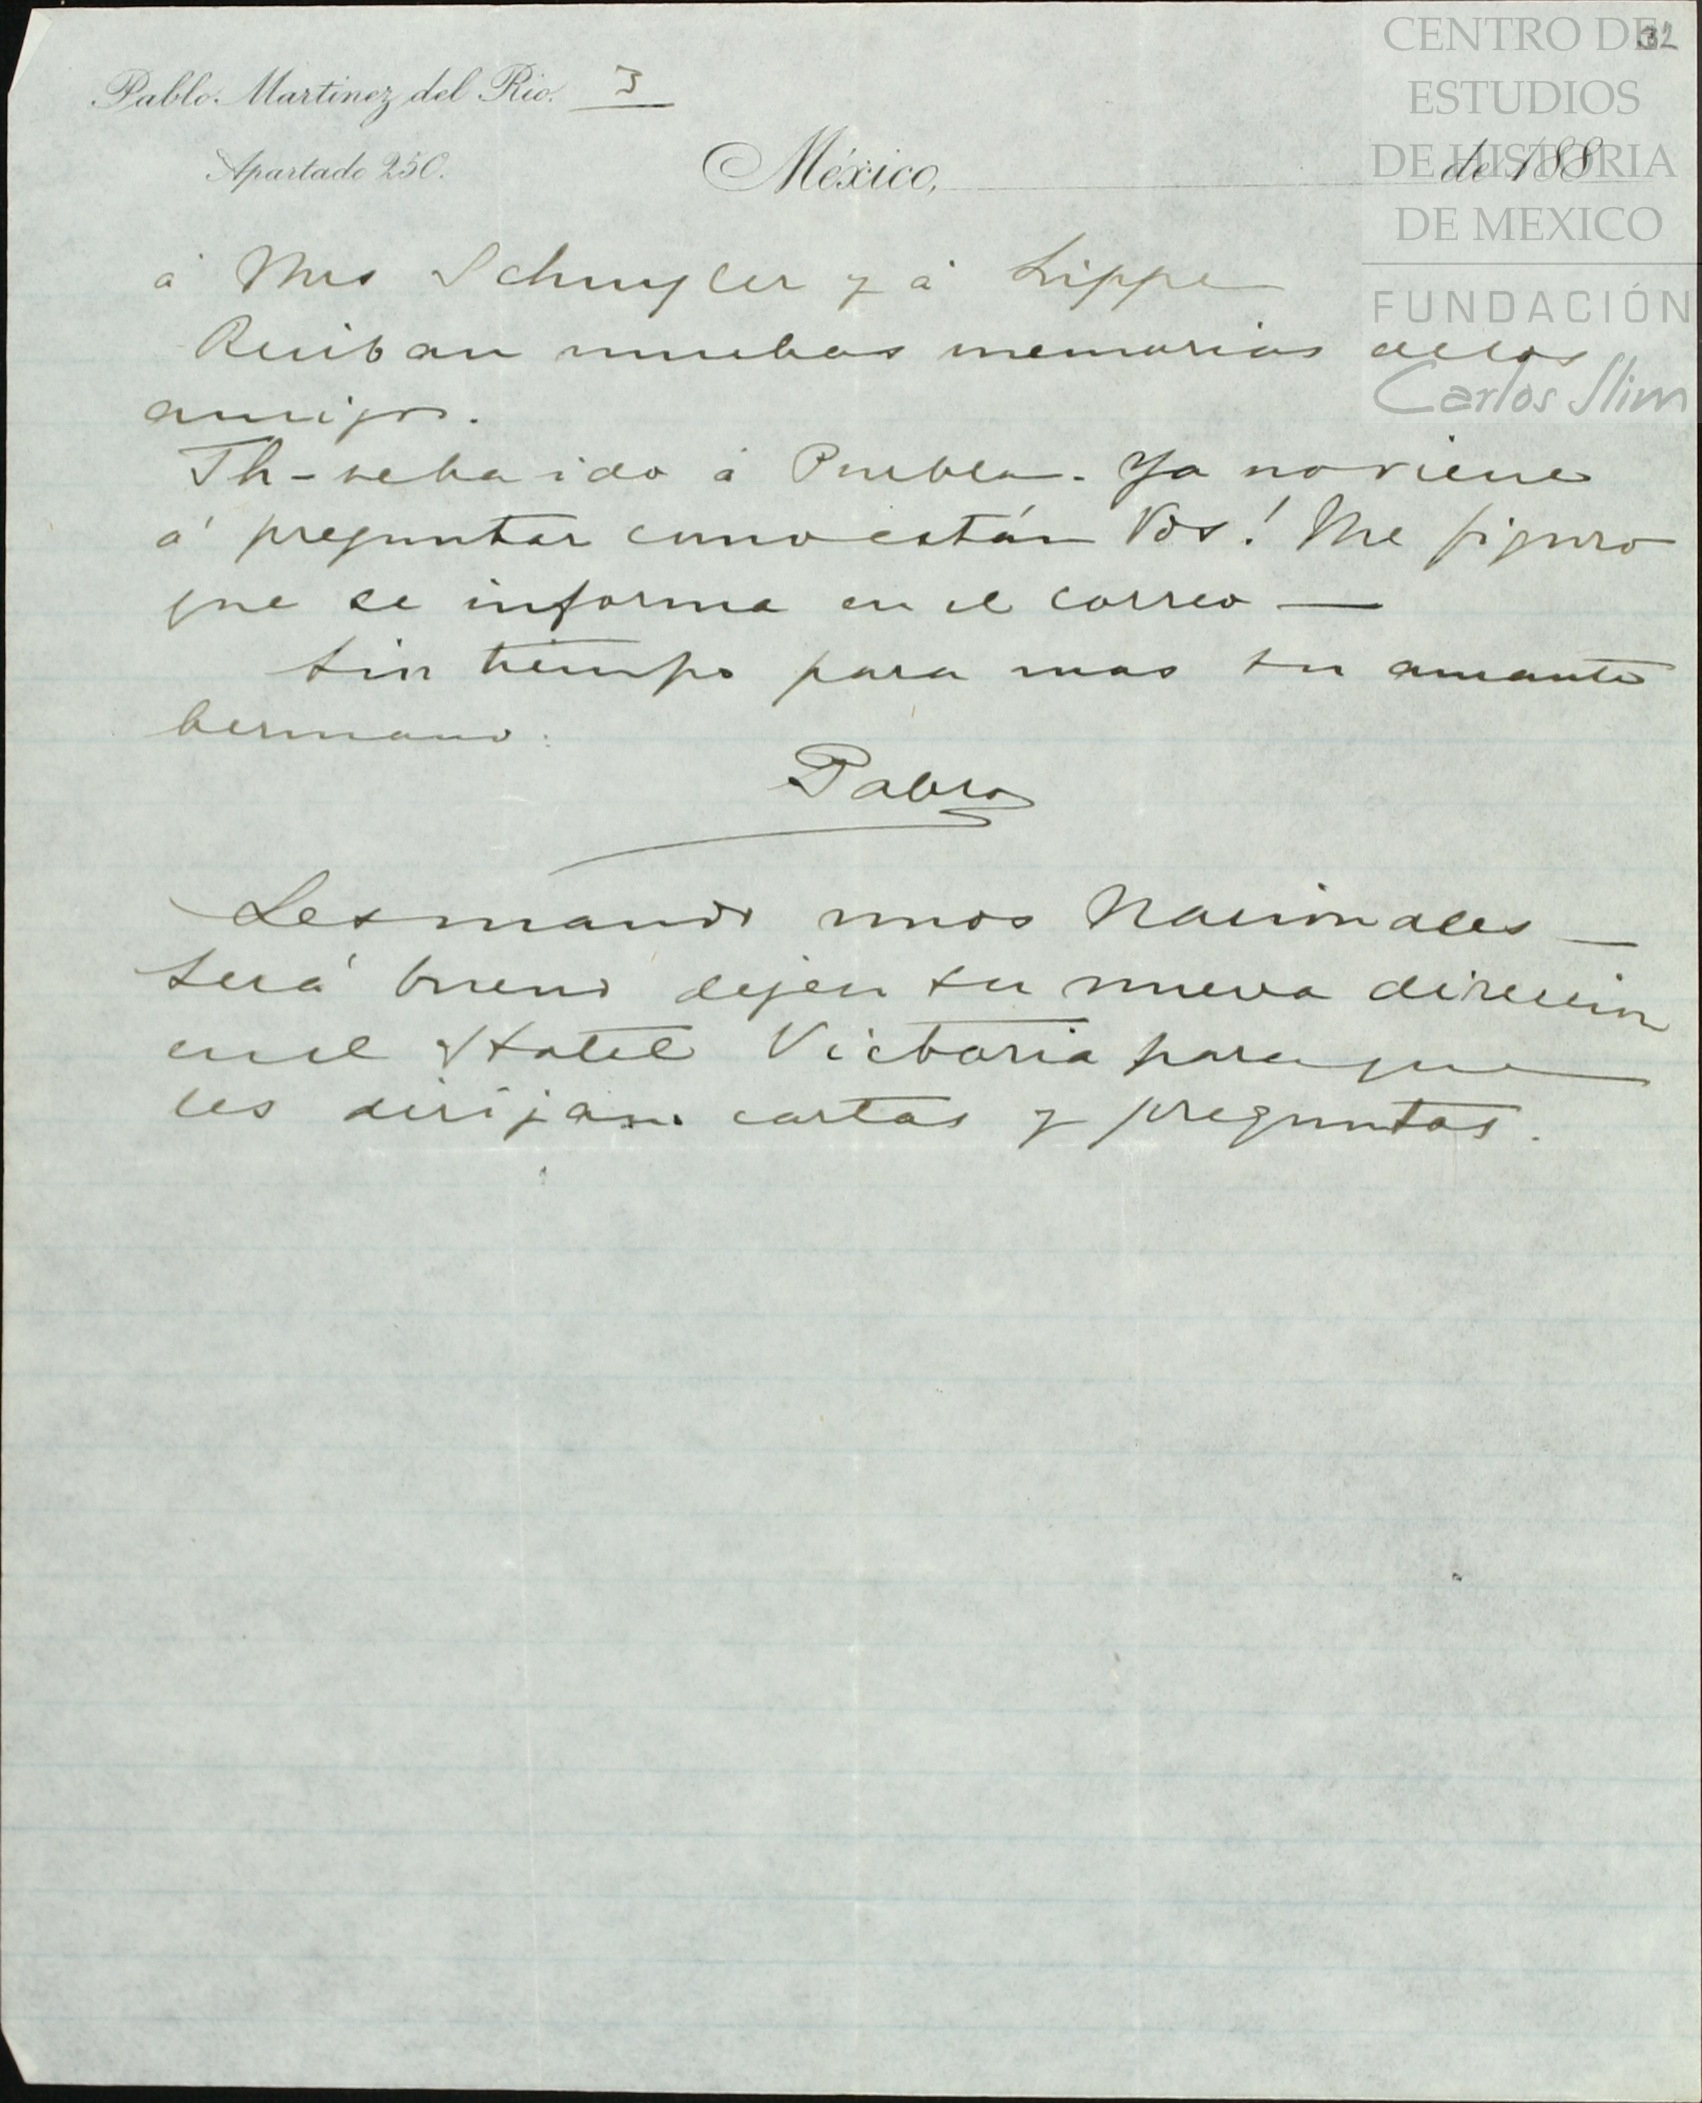 32
Pablo Martinez del Rio. 3
Apartado 250.
México, de 188
á Mrs Schuyler y á Lippe
Reciban muchas memorias de los
amigos.
Th - se ha ido á Puebla. Ya no viene
á preguntar como están Vds! Me figuro
que se informa en el correo —
Sin tiempo para mas su amante
hermano.
Pablo
Les mando unos Nacionales —
Será bueno dejen su nueva direccion
en el Hotel Victoria para que
les dirijan cartas y preguntas.
CENTRO DE
ESTUDIOS
DE HISTORIA
DE MEXICO
FUNDACIÓN
Carlos Slim